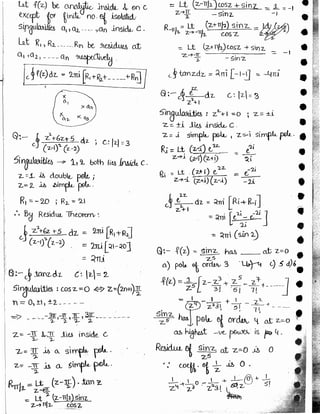 Let f(z) be analytic inside & on C
except for finite no. of isolated
singularities a₁, a₂ .... aₙ inside C.
Let R₁, R₂ ...... Rₙ be residues at
a₁, a₂, ..... aₙ respectively
∮ f(z) dz = 2πi [R₁+R₂+......+Rₙ]
x a₁
x a₂
x aₙ
Q:- ∮ z²+6z+5 / (z-1)²(z-2) dz ; C: |z|=3
Singularities → 1, 2 both lies inside C.
z=1 is double pole;
z=2 is simple pole.
R₁ = -20 ; R₂ = 21
∴ By Residue Theorem:
∮ z²+6z+5 / (z-1)²(z-2) dz = 2πi [R₁+R₂]
= 2πi [21-20]
= 2πi
Q:- ∮ tanz dz C: |z|=2
Singularities: cosz=0 ⇔ z=(2n+1)π/2
n = 0, ±1, ±2.....
z = -π/2 & π/2 lies inside C
z = π/2 is a simple pole.
z = -π/2 is a simple pole.
R π/2 = Lt z→π/2 (z-π/2).tan z
= Lt z→π/2 (z-π/2) sinz / cosz
= Lt z→π/2 (z-π/2) cosz + sinz / -sinz = 1/-1 = -1
R -π/2 = Lt z→-π/2 (z+π/2) sinz / cosz
= Lt z→-π/2 (z+π/2) cosz + sinz / -sinz = -1
∮ tanz dz = 2πi [-1-1] = -4πi
Q:- ∮ e^2z / z²+1 dz C: |z|=3
Singularities: z²+1=0 ; z=±i
z=±i lies inside C
z=i simple pole, z=-i simple pole.
Rᵢ = Lt z→i (z-i) e^2z / (z-i)(z+i) = e^2i / 2i
= Lt z→-i (z+i) e^2z / (z+i)(z-i) = e^-2i / -2i
∮ e^2z / z²+1 dz = 2πi [Rᵢ+R₋ᵢ]
= 2πi [e^2i - e^-2i / 2i]
= 2πi (sin 2)
Q:- f(z) = sinz / z⁵ has ____ at z=0
a) pole of order 3 b) 4 c) 5 d) 6
f(z) = 1/z⁵ [z - z³/3! + z⁵/5! - z⁷/7! ...]
= 1/z⁴ - 1/z²3! + 1/5! - z²/7! ....
sinz / z⁵ has pole of order 4 at z=0
as highest -ve power is 4.
Residue of sinz / z⁵ at z=0 is 0
∵ coeff. of 1/z is 0.